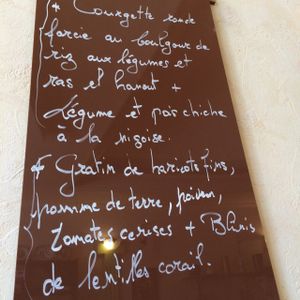 * Courgette ronde
farcie au boulgour de
riz aux légumes et
ras el hanout +
Légume et pois chiche
à la niçoise.
* Gratin de haricots fins,
pomme de terre, poivron,
Tomates cerises + Blinis
de lentilles corail.